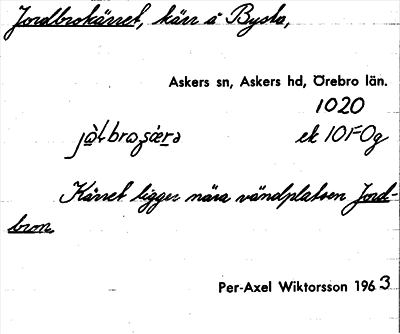 Jordbrokärret, kärr å Bysta,
Askers sn, Askers hd, Örebro län.
1020
ek 10F0g
Kärret ligger nära vändplatsen Jord-
bron.
Per-Axel Wiktorsson 1963